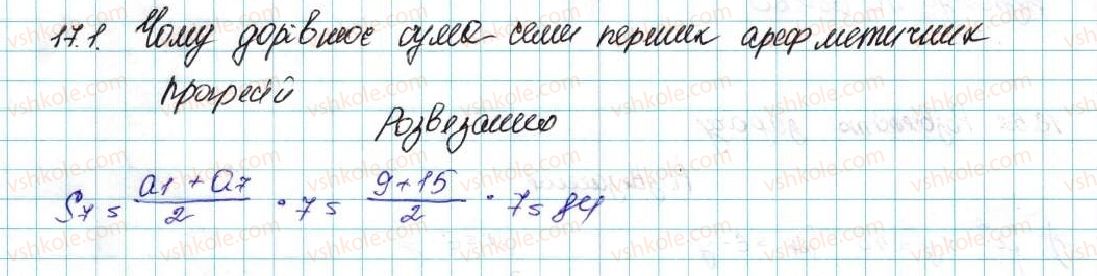 17.1. Чому дорівнює сума семи перших арефметичних
прогресій
Розвезанню
S7 = (a1 + a7)/2 · 7 = (9+15)/2 · 7 = 84